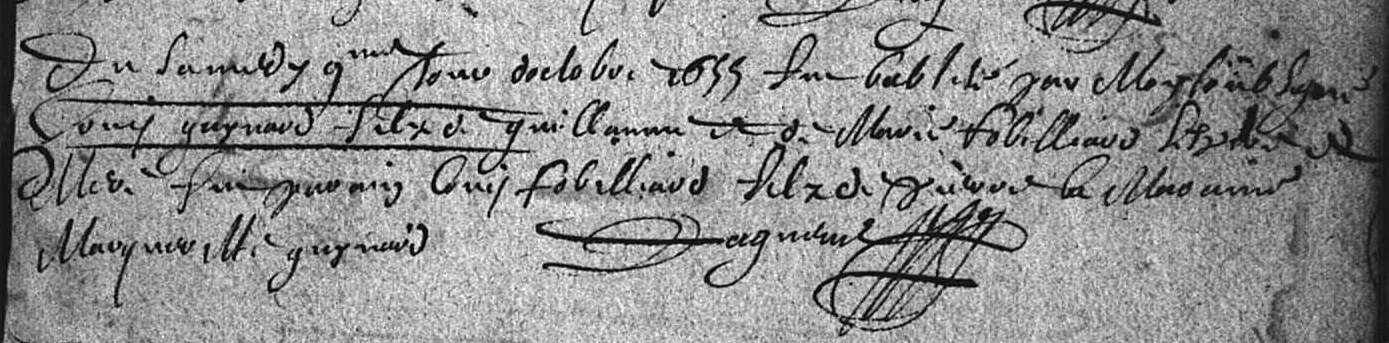 Du samedy 9me jour doctobre 1655 fut babtisé par Moy soubsigné
Louis guynard filz de guillaume et de Marie fobilliard
fut parain Louis fobilliard filz de pierre la Maraine
Margueritte guynard Daguenet